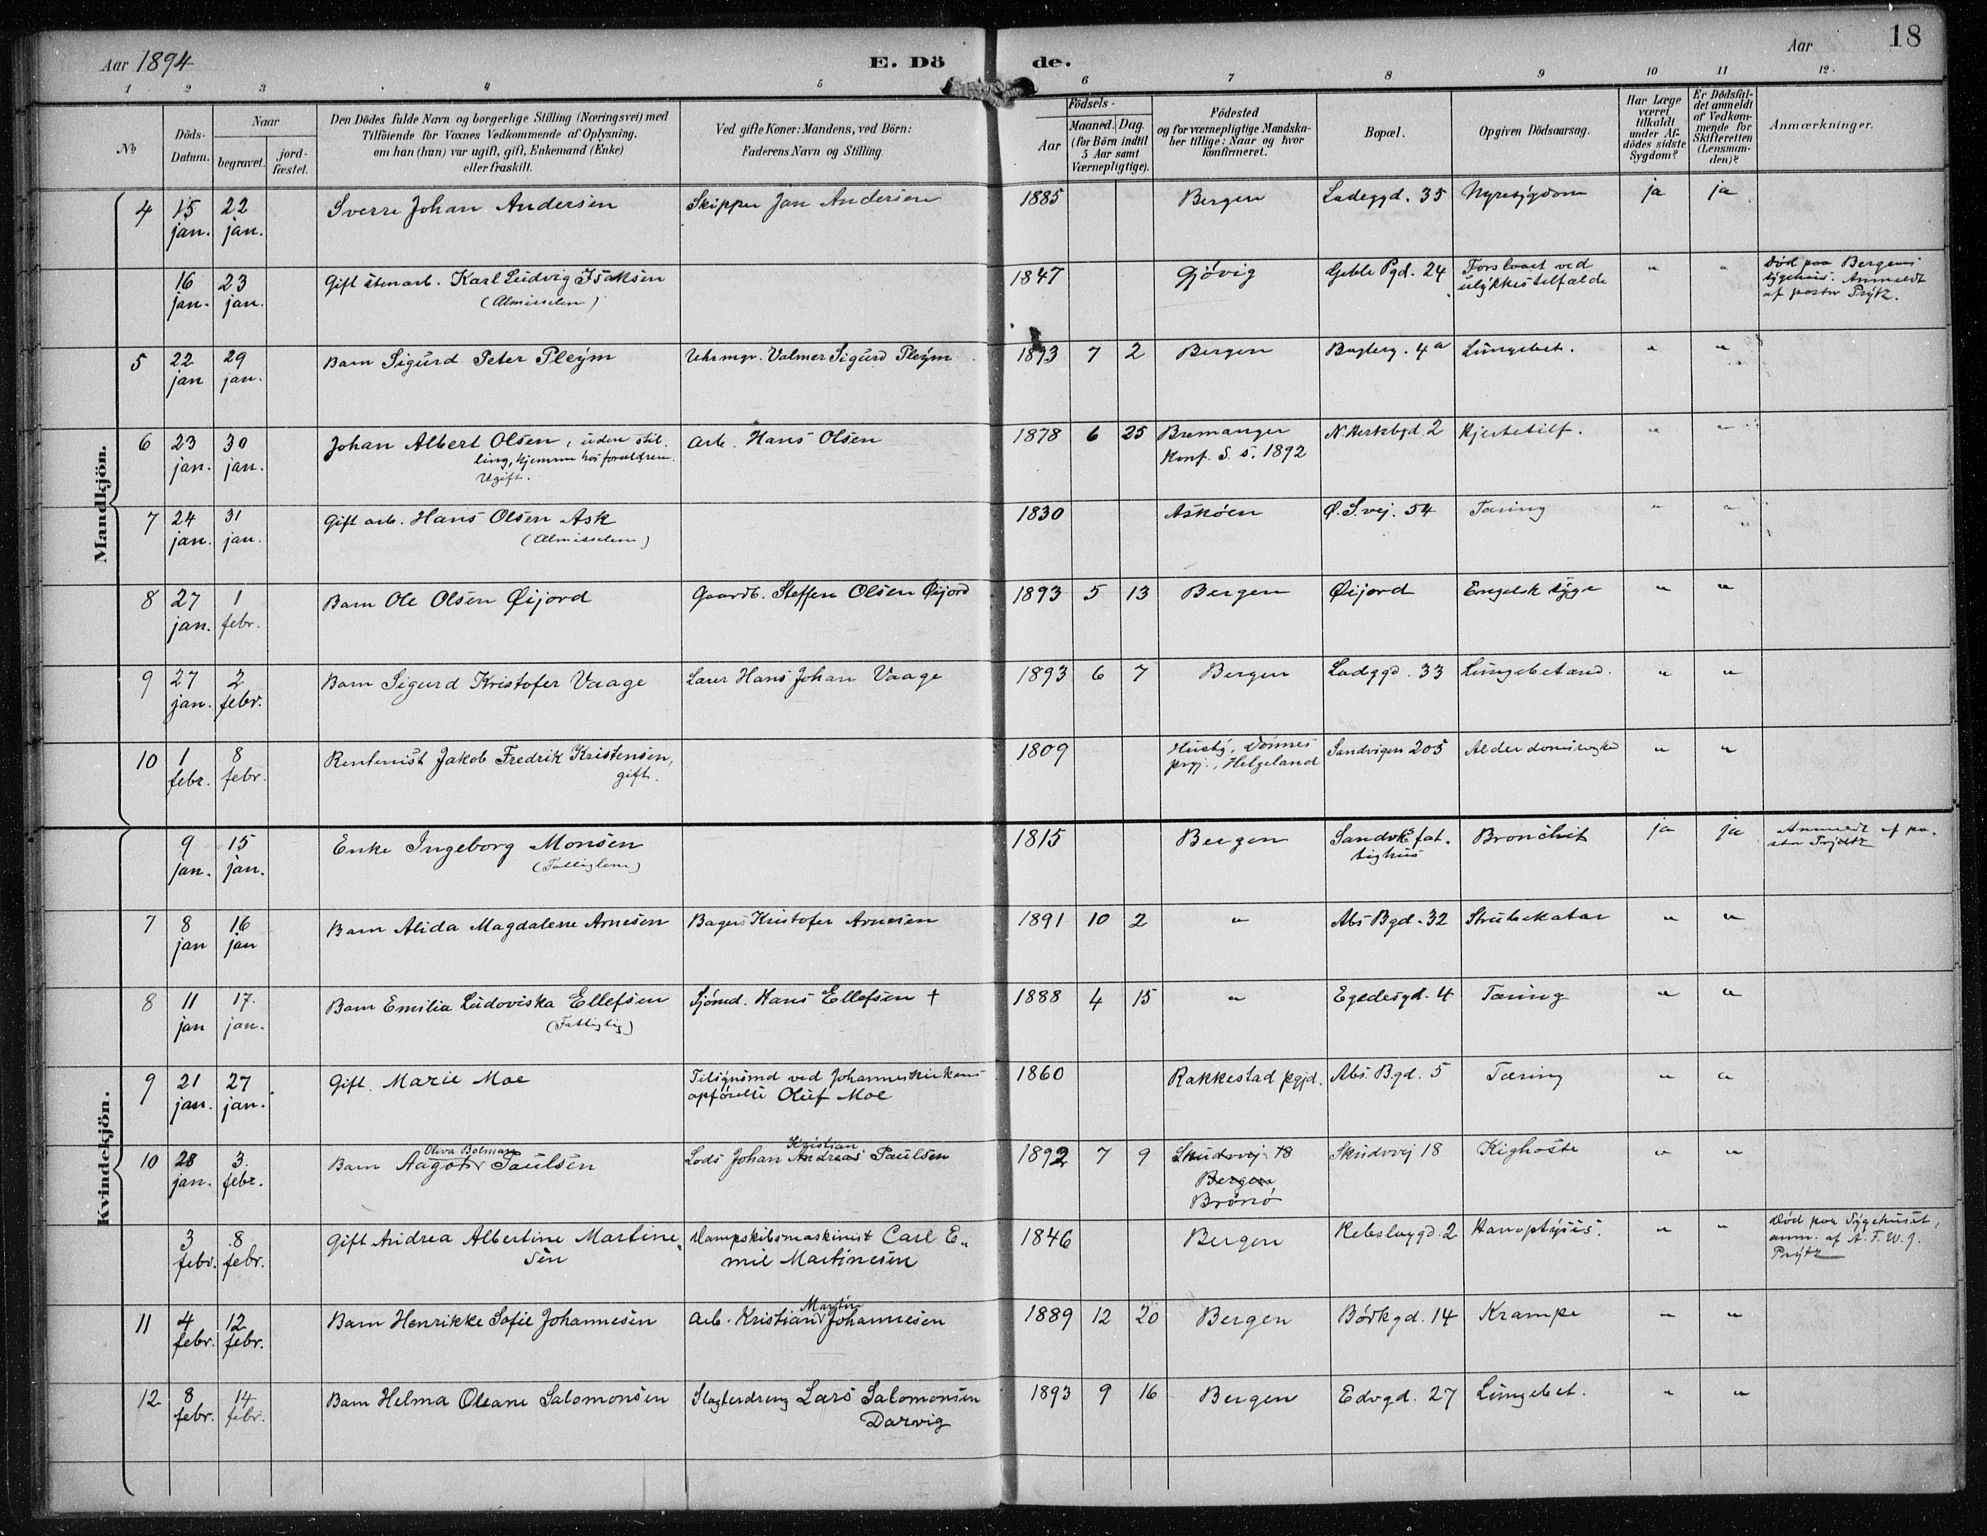 Aar 1894
E. Dö
de.
Aar
18
1 2 3 4 5 6 7 8 9 10 11 12.
No
Döds-Datum.
Naar
begravet.
jord-fæstet.
Den Dödes fulde Navn og borgerlige Stilling (Næringsvei) med
Tilföiende for Voxnes Vedkommende af Oplysning,
om han (hun) var ugift, gift, Enkemand (Enke)
eller fraskilt.
Ved gifte Koner: Mandens, ved Börn:
Faderens Navn og Stilling.
Födsels-
Aar
Maaned. Dag.
(for Börn indtil
5 Aar samt
Værnepligtige).
Födested
og for værnepligtige Mandska-
ber tillige: Naar og hvor
konfirmeret.
Bopæl.
Opgiven Dödsaarsag.
Har Læge
været
tilkaldt
under Af-
dödes sidste
Sygdom?
Er Dödsfal-
det anmeldt
af Vedkom-
mende for
Skifteretten
(Lensman-
den)?
Anmærkninger.
Mandkjön.
4 15 jan. 22 jan. Sverre Johan Andersen Skipper Jan Andersen 1885 Bergen Ladeggd. 35 Nyresygdom ja ja
16 jan. 23 jan. Gift stenarb. Karl Ludvig Isaksen 1847 Gjövig Geble Pgd. 24 Forslaaet ved
(Almisselem) ulykkestilfælde
" " Död paa Bergens
sygehus. Anmeldt
af pastor Prytz.
5 22 jan 29 jan. Barn Sigurd Peter Pleym Uhrmgr. Valmer Sigurd Pleym 1893 7 2 Bergen 4a Lungebet. " "
6 23 jan. 30 jan. Johan Albert Olsen, uden stil- Arb. Hans Olsen 1878 6 25 Bremanger N. Korskbgd 2 Hjertetilf. " "
ling, hjemme hos forældrene. Konf. S. s. 1892
Ugift.
7 24 jan. 31 jan. Gift arb. Hans Olsen Ask 1830 Askøen Ø. S.vej. 54 Tæring " "
(Almisselem)
8 27 jan. 1 febr. Barn Ole Olsen Øijord Gaardb. Steffen Olsen Øijord 1893 5 13 Bergen Øijord Engelsk syge " "
9 27 jan. 2 febr. Barn Sigurd Kristofer Vaage Lærer Hans Johan Vaage 1893 6 7 Bergen Ladggd. 33 Lungebetænd. " "
10 1 febr. 8 febr. Rentenist Jakob Fredrik Kristensen, 1809 Husby, Dønnes Sandvigen 205 Alderdomssvaghed " "
gift. prgj., Helgeland
Kvindekjön.
9 jan. 15 jan. Enke Ingeborg Monsen 1815 Bergen Sandvks fat- Bronchit ja ja Anmeldt af pa-
(Fattiglem) tighus stor Prytz
7 8 jan 16 jan Barn Alida Magdalene Arnesen Bager Kristofer Arnesen 1891 10 2 " Abs Bgd. 32 Strubekatar " "
8 11 jan 17. jan. Barn Emilia Ludoviska Ellefsen Sjömd. Hans Ellefsen † 1888 4 15 " Egedesgd. 4 Tæring " "
(Fattiglig)
9 21 jan. 27 jan. Gift. Marie Moe Tilsynsmd ved Johanneskirkens 1860 Rakkestad pgjd. Abs. Bgd. 5 Tæring " "
opførelse Oluf Moe
Oliva Bolman Kristian
10 28 jan. 3. febr. Barn Aagot Paulsen Lods Johan Andreas Paulsen 1892 7 9 Skudsvej 18 Skudsvej 18 Kighoste " "
Bergen
Brönö
3 febr. 8 febr. Gift Andrea Albertine Martine- Dampskibsmaskinist Carl E- 1846 Bergen Rebslaggd. 2 Hæmoptysis. " " Död paa Sygehuset,
sen mil Martinesen anm. af A. F. W. J.
Prytz
Martin
11 4 febr. 12 febr. Barn Henrikke Sofie Johannesen Arb. Kristian Johannesen 1889 12 20 Bergen Börkgd. 14 Krampe " "
12 8 febr. 14 febr. Barn Helma Oleane Salomonsen Slagterdreng Lars Salomonsen 1893 9 16 Bergen Edvgd. 27 Lungebet. " "
Darvig